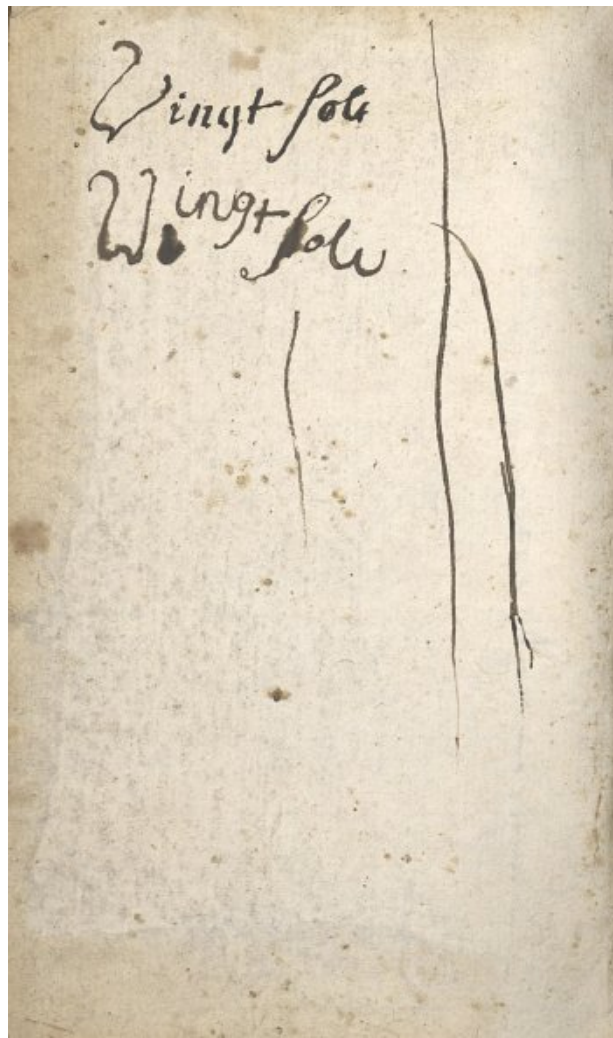 Vingt sols
Vingt sols